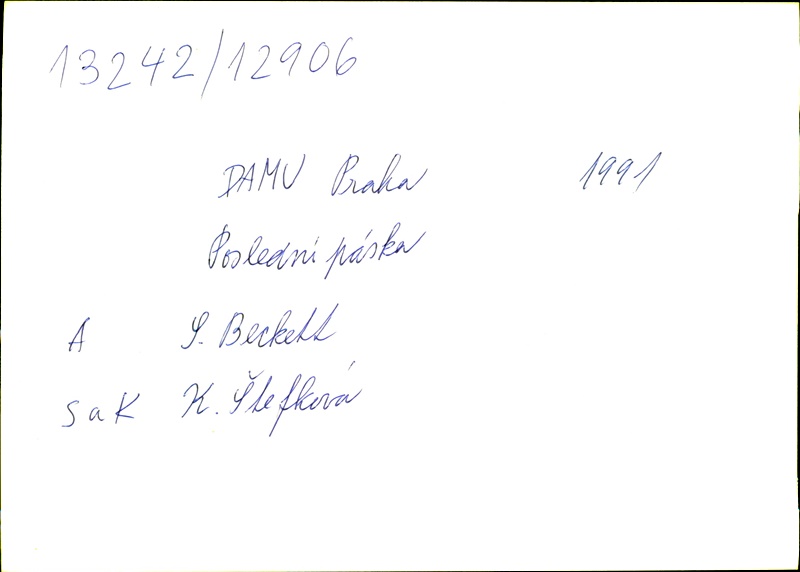 13242/12906
DAMU Praha 1991
Poslední páska
A S. Beckett
S a K K. Štefková